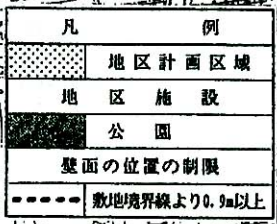 凡例
地区計画区域
地区施設
公園
壁面の位置の制限
敷地境界線より0.9m以上